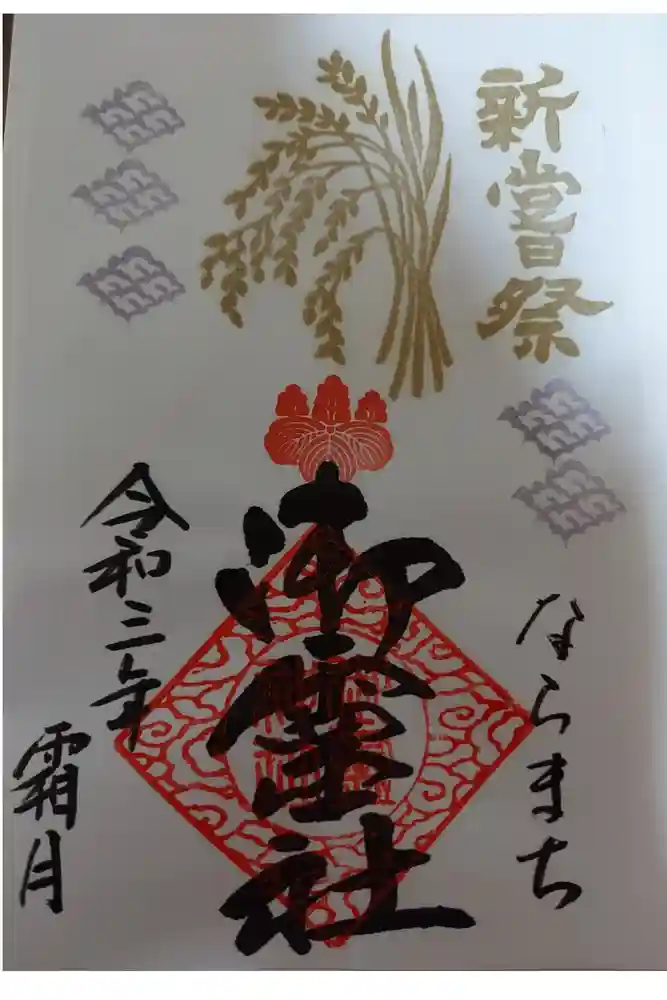 新嘗祭
ならまち
御霊社
令和三年
霜月